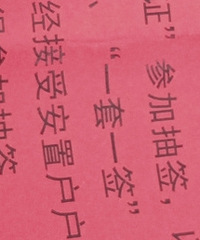 证”参加抽签，
、“一套一签”
经接受安置户户
参加抽签